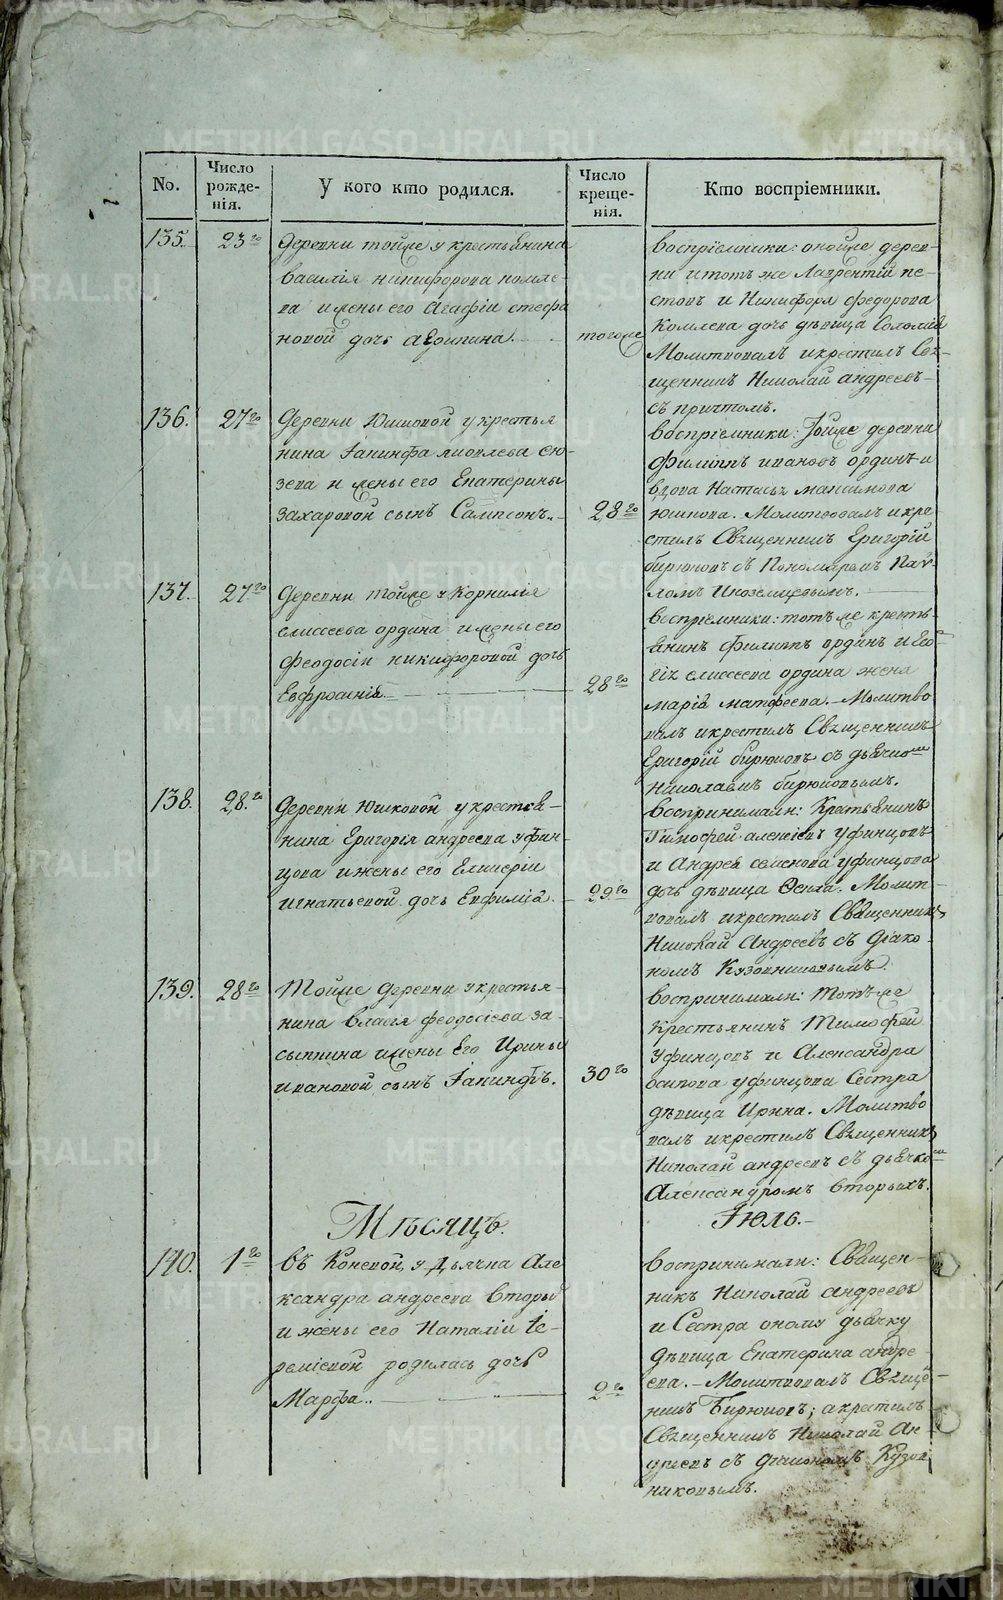 No.
Число рожде-
нія.
У кого кто родился.
Число креще-
нія.
Кто воспріемники.
135.
23го
деревни тойже у крестьянина
василія никифорова комле-
ва и жены его Агафіи стефа
новой дочь агрипина.
тогоже
воспріемники: онойже дерев-
ни и тотъ же Лаврентій пе-
стовъ и Никифора федорова
Комлева дочь дѣвица Соломія
Молитвовалъ и крестилъ Свя-
щенникъ Николай андреевъ
съ причтомъ.
136.
27го
Деревни Юшковой у крестья
нина Іакинфа
и жены его Екатерины
захаровой сынъ Сампсонъ.
28го
воспріемники: Тойже деревни
Филиппъ ивановъ ординъ и
вдова Настасья максимова
юшкова. Молитвовалъ и кре-
стилъ Священникъ Григорій
бирюковъ съ Пономаремъ Пав-
ломъ Иноземцовымъ.
137.
27го
Деревни тойже у Корнилія
елисеева ордина и жены его
Феодосіи никифоровой дочь
Евфросинія
28го
воспріемники: тотъ же кресть-
янинъ Филиппъ ординъ и
елисеева ордина жена
марія матфеева. Молитво
валъ и крестилъ Священникъ
Григорій бирюковъ съ дьячкомъ
николаемъ бирюковымъ.
138.
28.го
деревни Юшковой у крестья-
нина Григорія андреева уфин-
цова и жены его Гликеріи
игнатьевой дочь Евфимія.
29го
воспринимали: Крестьянинъ
Тимофей алексіевъ уфинцовъ
и Андрея семенова уфинцова
дочь дѣвица Фекла. Молит-
вовалъ и крестилъ Священникъ
Николай Андреевъ съ Діако-
номъ Кузовниковымъ.
139.
28го
Тойже деревни у крестья-
нина власія феодосіева за-
сыпкина и жены Его Ирины
ивановой сынъ Іакинфъ.
30го
воспринимали: Тотъ же
крестьянинъ Тимофей
уфинцовъ и Александра
осипова уфинцова Сестра
дѣвица Ирина. Молитво
валъ и крестилъ Священникъ
Николай андреевъ съ дьячкомъ
Александромъ вторыхъ.
Мѣсяцъ.
Іюль.
140.
1го
въ Коневой, у Дьячка Але
ксандра андреева вторый
и жены его Наталіи Іе-
реміевой родилась дочь
Марфа.
2го
воспринимали: Священ-
никъ Николай андреевъ
и Сестра оному дьячку
дѣвица Екатерина андре-
ева. Молитвовалъ Священ-
никъ Бирюковъ; а крестилъ
Священникъ Николай Ан-
дреевъ съ діакономъ Кузов
никовымъ.
METRIKI.GASO-URAL.RU